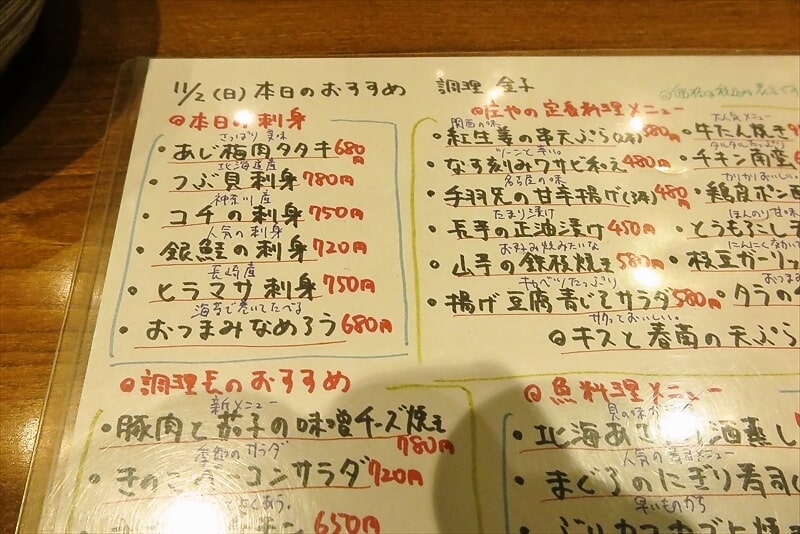 11/2(日)本日のおすすめ
調理 金子
◎本日の刺身
さっぱり美味
・あじ梅肉タタキ 680円
北海道産
・つぶ貝刺身 780円
神奈川産
・コチの刺身 750円
人気の刺身
・銀鮭の刺身 720円
長崎産
・ヒラマサ刺身 750円
海苔で巻いてたべる
・おつまみなめろう 680円
◎庄やの定番料理メニュー
関西の味
・紅生姜の串天ぷら(2本)580円
ツーンと辛い。
・なす刻みワサビ和え 480円
名古屋の味
・手羽先の甘辛揚げ(3本)480円
たまり漬け
・長芋の正油漬け 450円
お好み焼みたいな
・山芋の鉄板焼き 580円
キャベツたっぷり
・揚げ豆腐青じそサラダ 580円
サクっておいしい。
◎キスと春菊の天ぷら
大人気メニュー
・牛たん焼き
タルタルたっぷり
・チキン南蛮
・鶏皮ポン酢
ほんのり甘味
・とうもろこし
にんにくなかい
・枝豆ガーリッ
おつまみ
・タラの
◎調理長のおすすめ
新メニュー
・豚肉と茄子の味噌チーズ焼き
780円
季節のサラダ
・きのこ コンサラダ 720円
チン 650円
◎魚料理メニュー
・北海あさり酒蒸し
人気の寿司メニュー
・まぐろのにぎり寿司
早いものがち
・ぶりカマカブト焼き